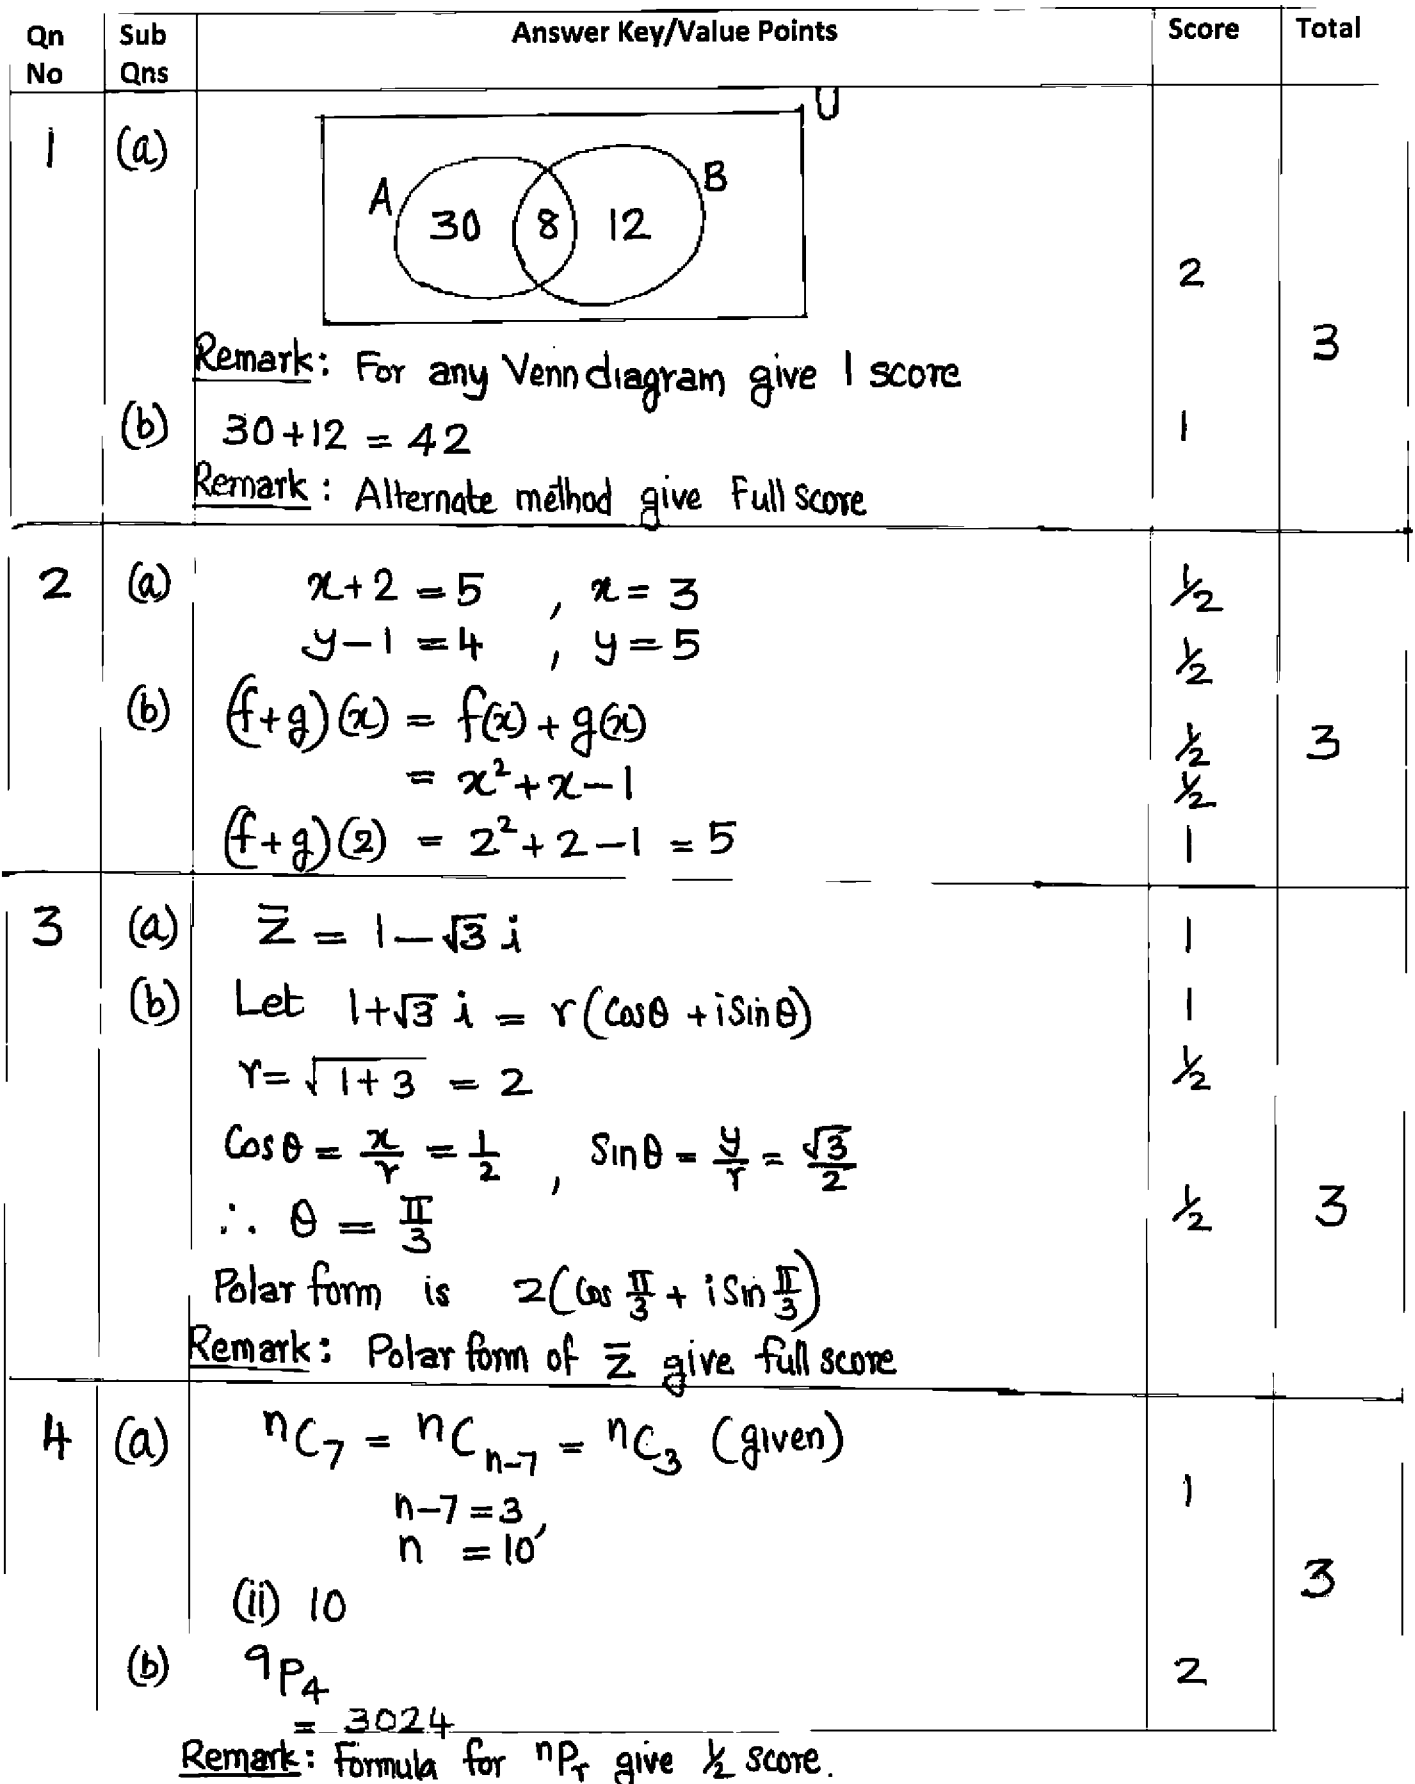 Qn No Sub Qns Answer Key/Value Points Score Total
1 (a) U
A 30 8 12 B
2
3
Remark: For any Venn diagram give 1 score
(b) 30+12 = 42 1
Remark: Alternate method give Full score
2 (a) x+2 = 5 , x = 3 ½
y−1 = 4 , y = 5 ½
(b) (f+g)(x) = f(x) + g(x) ½ 3
= x²+x−1 ½
(f+g)(2) = 2²+2−1 = 5 1
3 (a) z̄ = 1−√3 i 1
(b) Let 1+√3 i = r(Cosθ + i Sin θ) 1
r = √(1+3) = 2 ½
Cos θ = x/r = 1/2 , Sinθ = y/r = √3/2
∴ θ = π/3 ½ 3
Polar form is 2(Cos π/3 + i Sin π/3)
Remark: Polar form of z̄ give full score
4 (a) ⁿC₇ = ⁿCₙ₋₇ = ⁿC₃ (given)
n−7 = 3, 1
n = 10
3
(ii) 10
(b) ⁹P₄ 2
= 3024
Remark: Formula for ⁿPᵣ give ½ score.